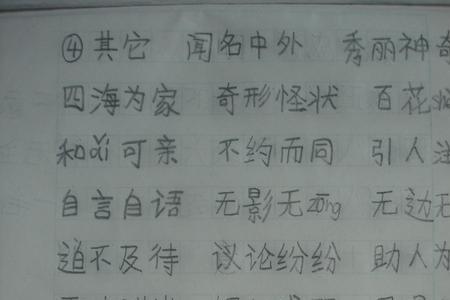 ④其它 闻名中外 秀丽神奇
四海为家 奇形怪状 百花
和ǎi可亲 不约而同 引人注
自言自语 无影无zōng 无边无
迫不及待 议论纷纷 助人为